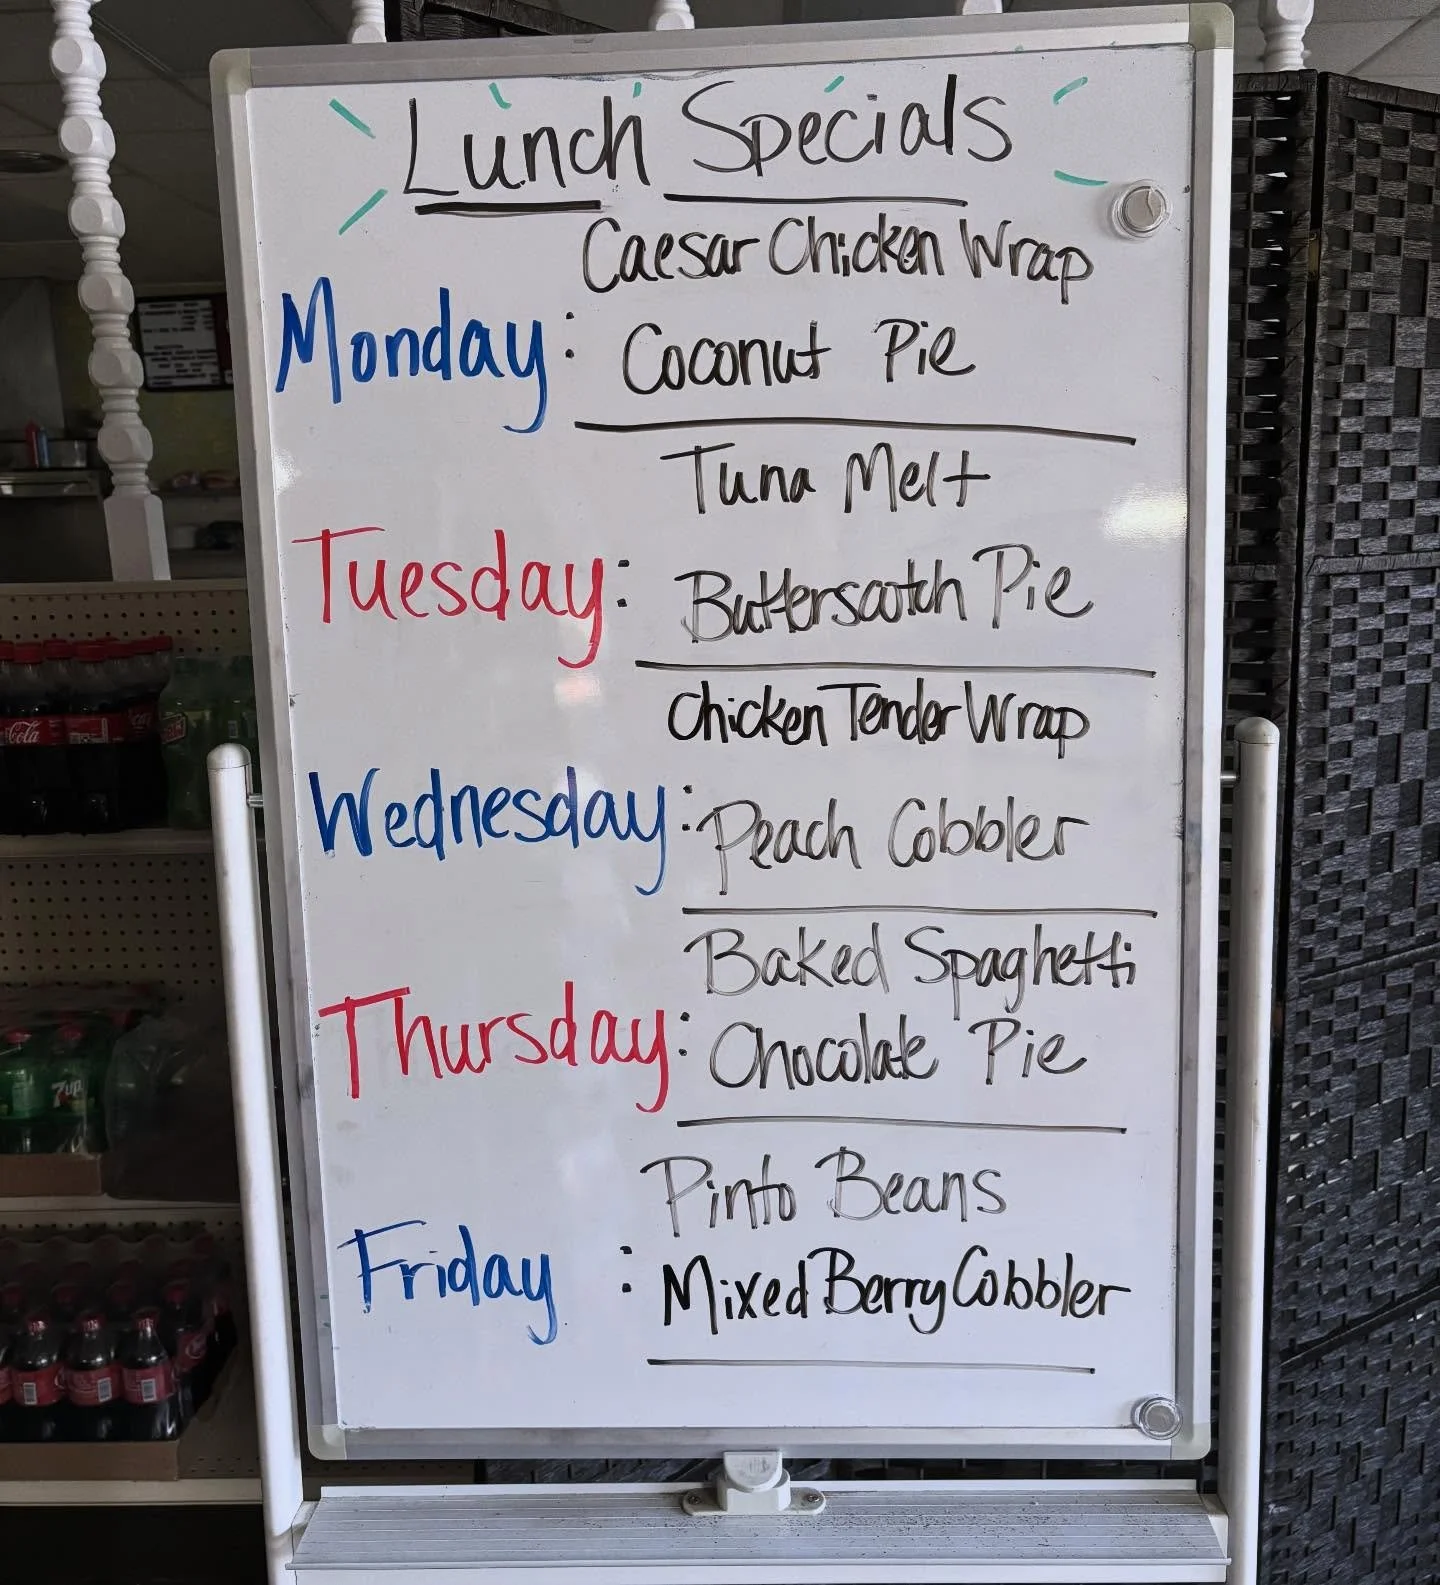 Lunch Specials
Caesar Chicken Wrap
Monday:
Coconut Pie
Tuna Melt
Tuesday:
Butterscotch Pie
Chicken Tender Wrap
Wednesday:
Peach Cobbler
Baked Spaghetti
Thursday:
Chocolate Pie
Pinto Beans
Friday :
Mixed Berry Cobbler
Cola
7up